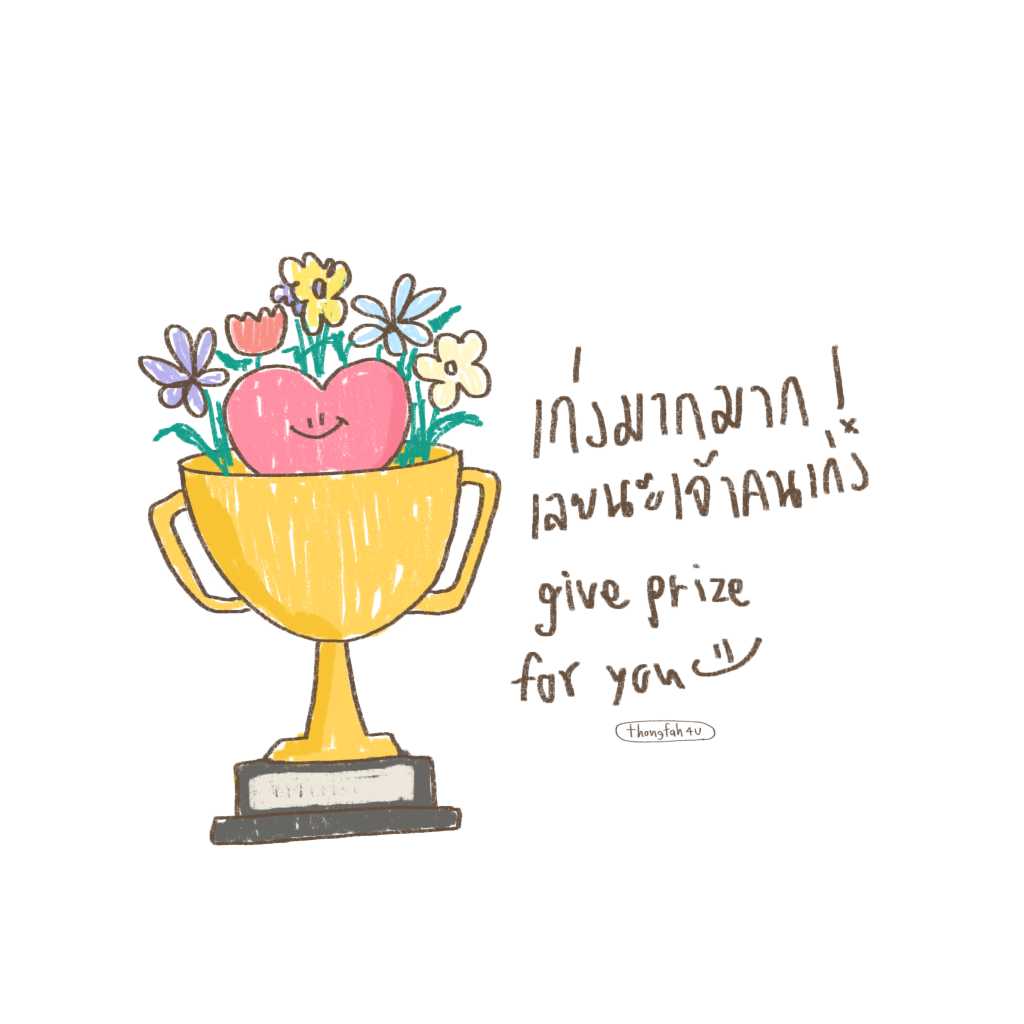 เก่งมากมาก!
เลยนะเจ้าคนเก่ง
give prize
for you
thongfah4u